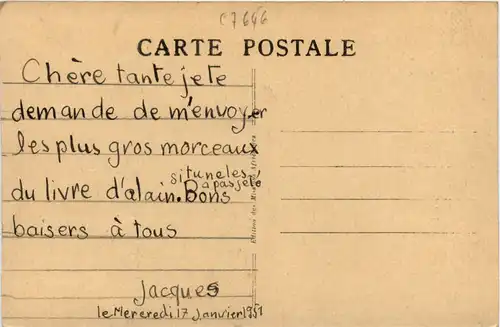 C7646
CARTE POSTALE
Chère tante je te
demande de m'envoyer
les plus gros morceaux
si tu ne les
a pas jeté
du livre d'alain. Bons
baisers à tous
Jacques
le Mercredi 17 Janvier 1951